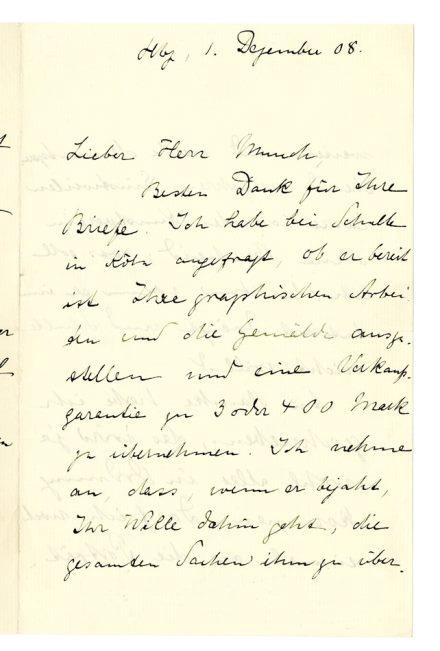 Hbg, 1. Dezember 08.
Lieber Herr Munch,
Besten Dank für Ihre
Briefe. Ich habe bei Schulte
in Köln angefragt, ob er bereit
ist Ihre graphischen Arbei
ten und die Gemälde auszu-
stellen und eine Verkaufs-
garantie zu 3 oder 400 Mark
zu übernehmen. Ich nehme
an, dass, wenn er bejaht,
Ihr Wille dahin geht, die
gesamten Sachen ihm zu über-